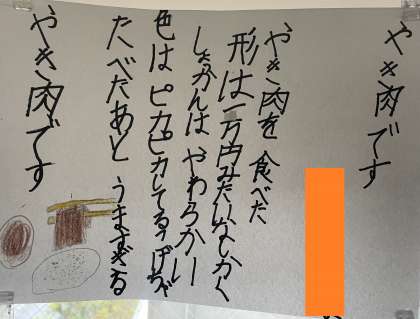 やき肉です
やき肉を食べた
形は一万円みたいなしかく
しょっかんはやわらかい
色はピカピカしてるうすちゃ
たべたあとうますぎる
やき肉です